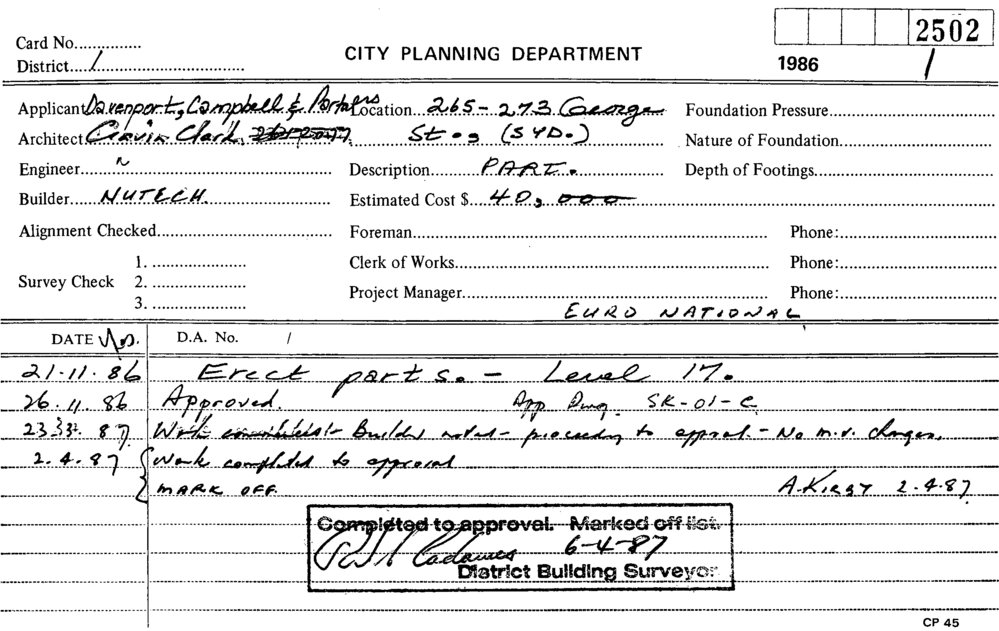 2502
Card No...............
CITY PLANNING DEPARTMENT
District..../..............................
1986
/
Applicant Davenport, Campbell & Partners Location...265-273 George Foundation Pressure
Architect Clark, St., (SYD.) Nature of Foundation
Engineer Description PART. Depth of Footings
Builder NUTECH Estimated Cost $ 40,000
Alignment Checked Foreman Phone:
1.
Clerk of Works Phone:
Survey Check 2.
Project Manager Phone:
3.
EURO NATIONAL
DATE D.A. No. /
21.11.86 Erect parts. - Level 17.
26.11.86 Approved. App Dwg. SK-01-C
23 87 Work Builder noted - proceeding to approval. - No m.v. changes.
2.4.87 Work completed to approval
MARK OFF. A.KIRBY 2.4.87
Completed to approval. Marked off list.
6-4-87
District Building Surveyor.
CP 45